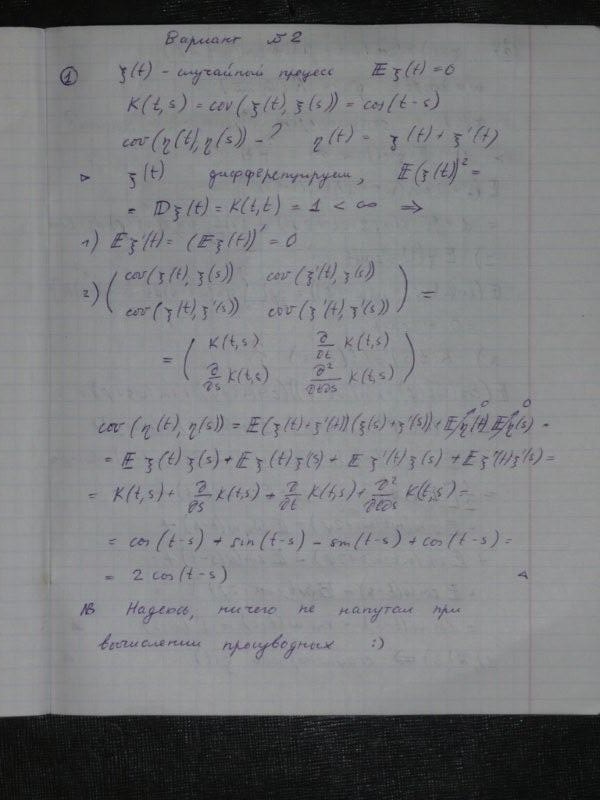 Вариант №2
① ξ(t) – случайный процесс 𝔼ξ(t) = 0
K(t,s) = cov(ξ(t), ξ(s)) = cos(t-s)
cov(η(t), η(s)) – ? η(t) = ξ(t) + ξ'(t)
▷ ξ(t) дифференцируем, 𝔼(ξ(t))² =
= 𝔻ξ(t) = K(t,t) = 1 < ∞ ⇒
1) 𝔼ξ'(t) = (𝔼ξ(t))' = 0
2) ( cov(ξ(t), ξ(s)) cov(ξ'(t), ξ(s))
cov(ξ(t), ξ'(s)) cov(ξ'(t), ξ'(s)) ) =
= ( K(t,s) ∂/∂t K(t,s)
∂/∂s K(t,s) ∂²/∂t∂s K(t,s) )
cov(η(t), η(s)) = 𝔼(ξ(t)+ξ'(t))(ξ(s)+ξ'(s)) + 𝔼η(t) 𝔼η(s) =
= 𝔼ξ(t)ξ(s) + 𝔼ξ(t)ξ(s) + 𝔼ξ'(t)ξ(s) + 𝔼ξ'(t)ξ'(s) =
= K(t,s) + ∂/∂s K(t,s) + ∂/∂t K(t,s) + ∂²/∂t∂s K(t,s) =
= cos(t-s) + sin(t-s) - sin(t-s) + cos(t-s) =
= 2 cos(t-s) ◁
NB Надеюсь, ничего не напутал при
вычислении производных :)